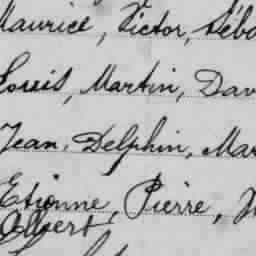 Maurice, Victor, Séba
Louis, Martin, Dav
Jean, Delphin, Mar
Etienne, Pierre, J
Albert